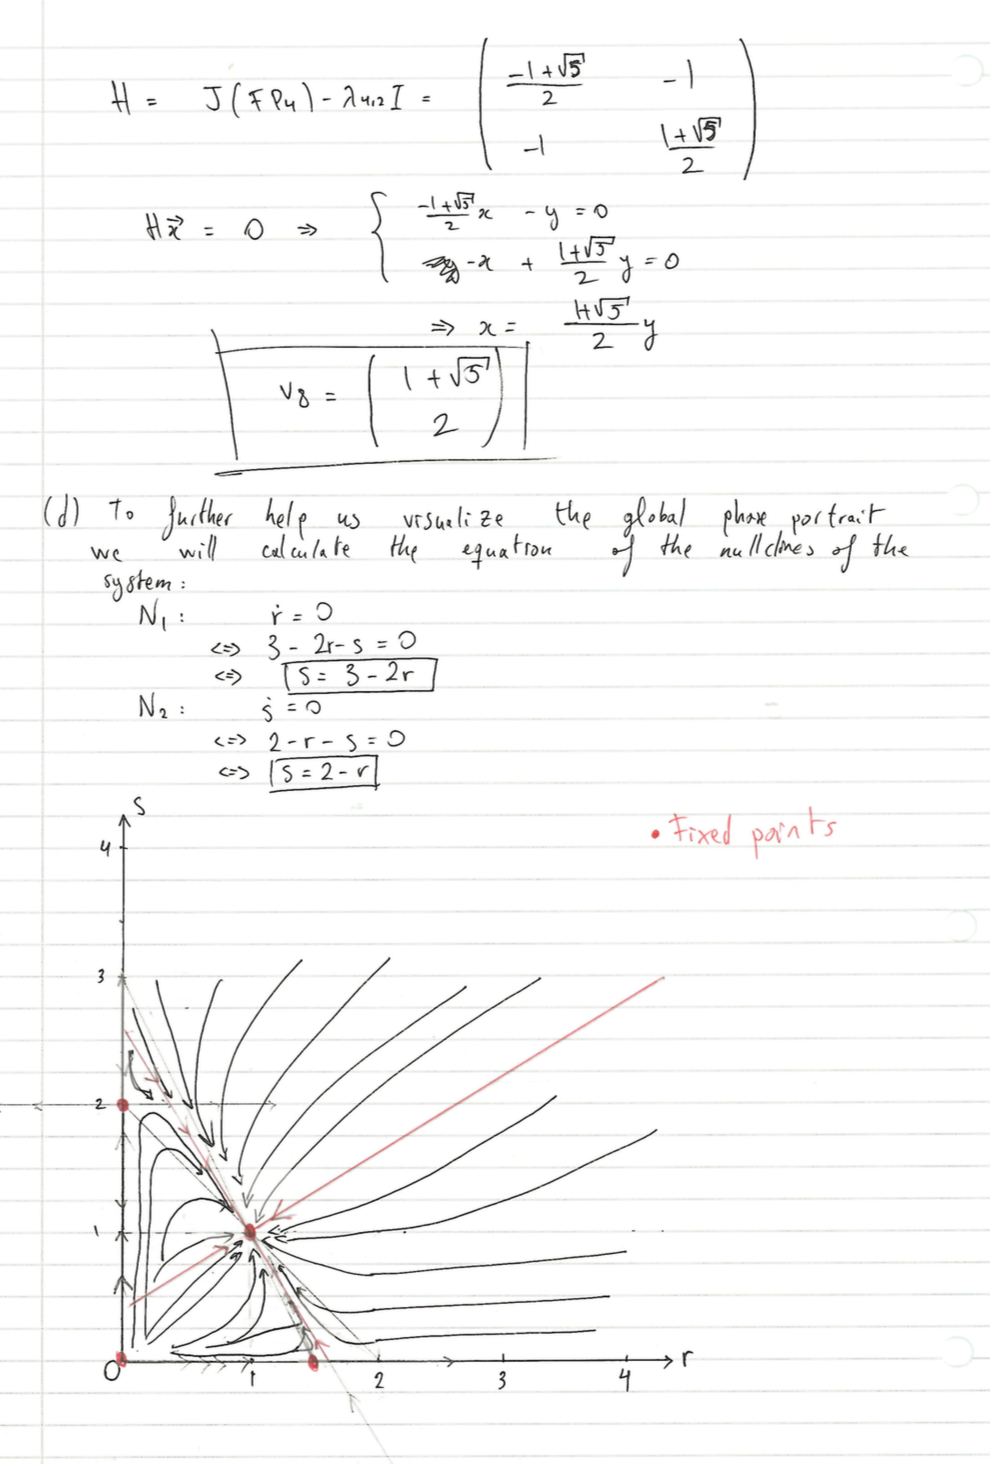 H = J(FP4) - λ4,2 I = ( (-1+√5)/2 -1
-1 (1+√5)/2 )
Hx⃗ = 0 => { (-1+√5)/2 x - y = 0
-x + (1+√5)/2 y = 0
=> x = (1+√5)/2 y
v8 = ( 1+√5
2 )
(d) To further help us visualize the global phase portrait
we will calculate the equation of the nullclines of the
system:
N1: ṙ = 0
<=> 3 - 2r - s = 0
<=> s = 3 - 2r
N2: ṡ = 0
<=> 2 - r - s = 0
<=> s = 2 - r
s
• Fixed points
4
3
2
1
0 1 2 3 4 r